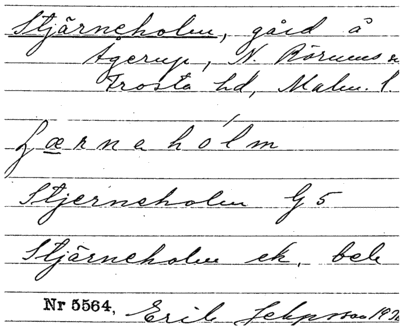 Stjärneholm, gård å
Agerup, N. Rörums sn
Frosta hd, Malm. l.
Stjerneholm G5
Stjärneholm ek. bel
Nr 5564. Erik Jeppsson 19